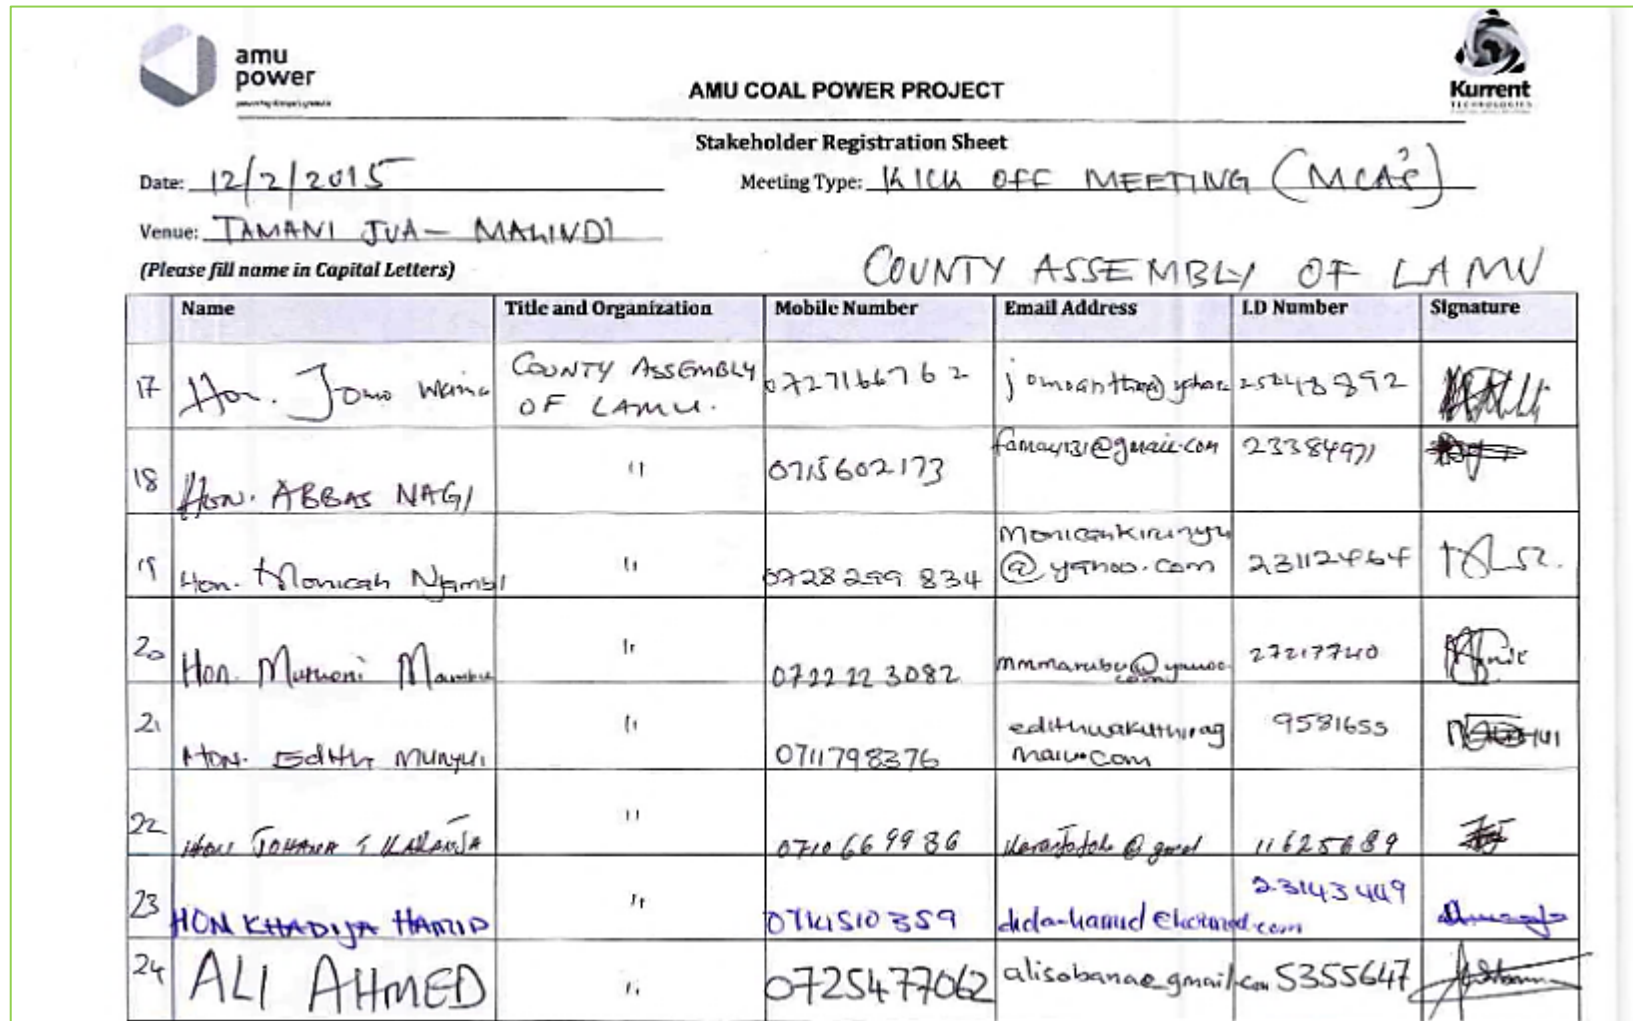 amu
power
Kurrent
TECHNOLOGIES
AMU COAL POWER PROJECT
Stakeholder Registration Sheet
Date: 12/2/2015
Meeting Type: KICK OFF MEETING (MCA's)
Venue: TAMANI JUA - MALINDI
(Please fill name in Capital Letters)
COUNTY ASSEMBLY OF LAMU
Name Title and Organization Mobile Number Email Address I.D Number Signature
17 Hon. Jomo Waina COUNTY ASSEMBLY OF LAMU. 0727166762 25248892
18 HON. ABBAS NAGI " 0715602173 famau131@gmail.com 23384971
19 Hon. Monicah Njambi " 0728299834 monicahkirinyu@yahoo.com 23112464
20 Hon. Mumoni " 0722223082 mmmarubu@yahoo.com 27217740
21 HON. Edith Munyui " 0711798376 edithwakuthirag mail.com 9581655
22 HON JOHANA KARANJA " 0710669986 11625689
23 HON KHADIJA HAMID " 0714510359 dida-hamid@hotmail.com 23143449
24 ALI AHMED " 0725477062 alisobanae gmail.com 5355647